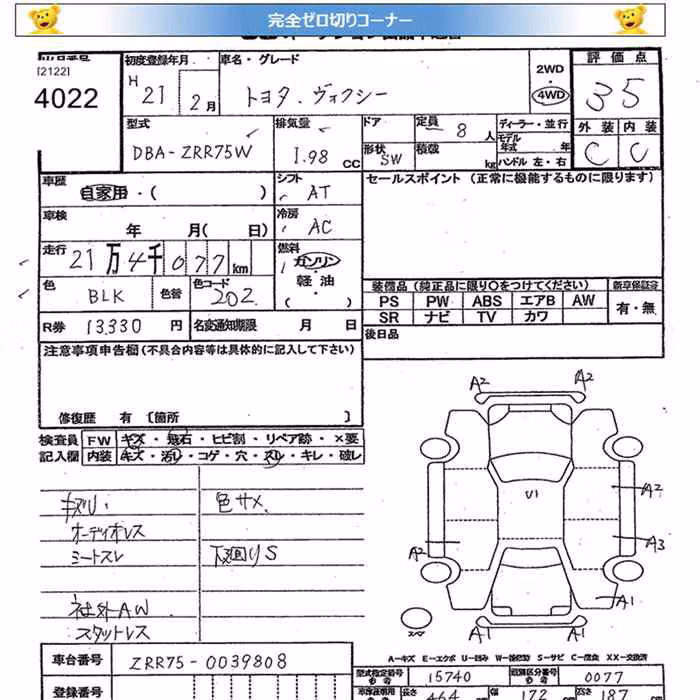 完全ゼロ切りコーナー
[2122]
4022
初度登録年月
H 21 2月
車名・グレード
トヨタ.ヴォクシー
2WD
4WD
評価点
35
型式
DBA-ZRR75W
排気量
1.98 CC
ドア
形状 SW
定員 8人
積載 kg
ディーラー・並行
モデル年式 年
ハンドル 左・右
外装 内装
C C
車歴
自家用・( )
シフト
AT
セールスポイント (正常に機能するものに限ります)
車検
年 月( 日)
冷房
AC
走行
21万4千077km
燃料
ガソリン
軽油
( )
色
BLK
色替
色コード
202
装備品(純正品に限り○をつけてください)
新車保証書
PS PW ABS エアB AW
有・無
SR ナビ TV カワ
R券 13,330 円
名変通知期限 月 日
後日品
注意事項申告欄(不具合内容等は具体的に記入して下さい)
修復歴 有 〔箇所 〕
検査員
記入欄
FW キズ・飛石・ヒビ割・リペア跡・×要
内装 キズ・汚れ・コゲ・穴・スレ・キレ・破レ
色サメ
オーディオレス
シートスレ
下廻りS
社外AW
スタットレス
A2 A2
U1
A2
A2 A3
A1
A1 A1
スペア
A-キズ E-エクボ U-凹み W-波(板金) S-サビ C-腐食 XX-交換済
車台番号
ZRR75-0039808
型式指定番号
15740
類別区分番号
0077
登録番号
長さ 464 cm 幅 172 cm 高さ 187